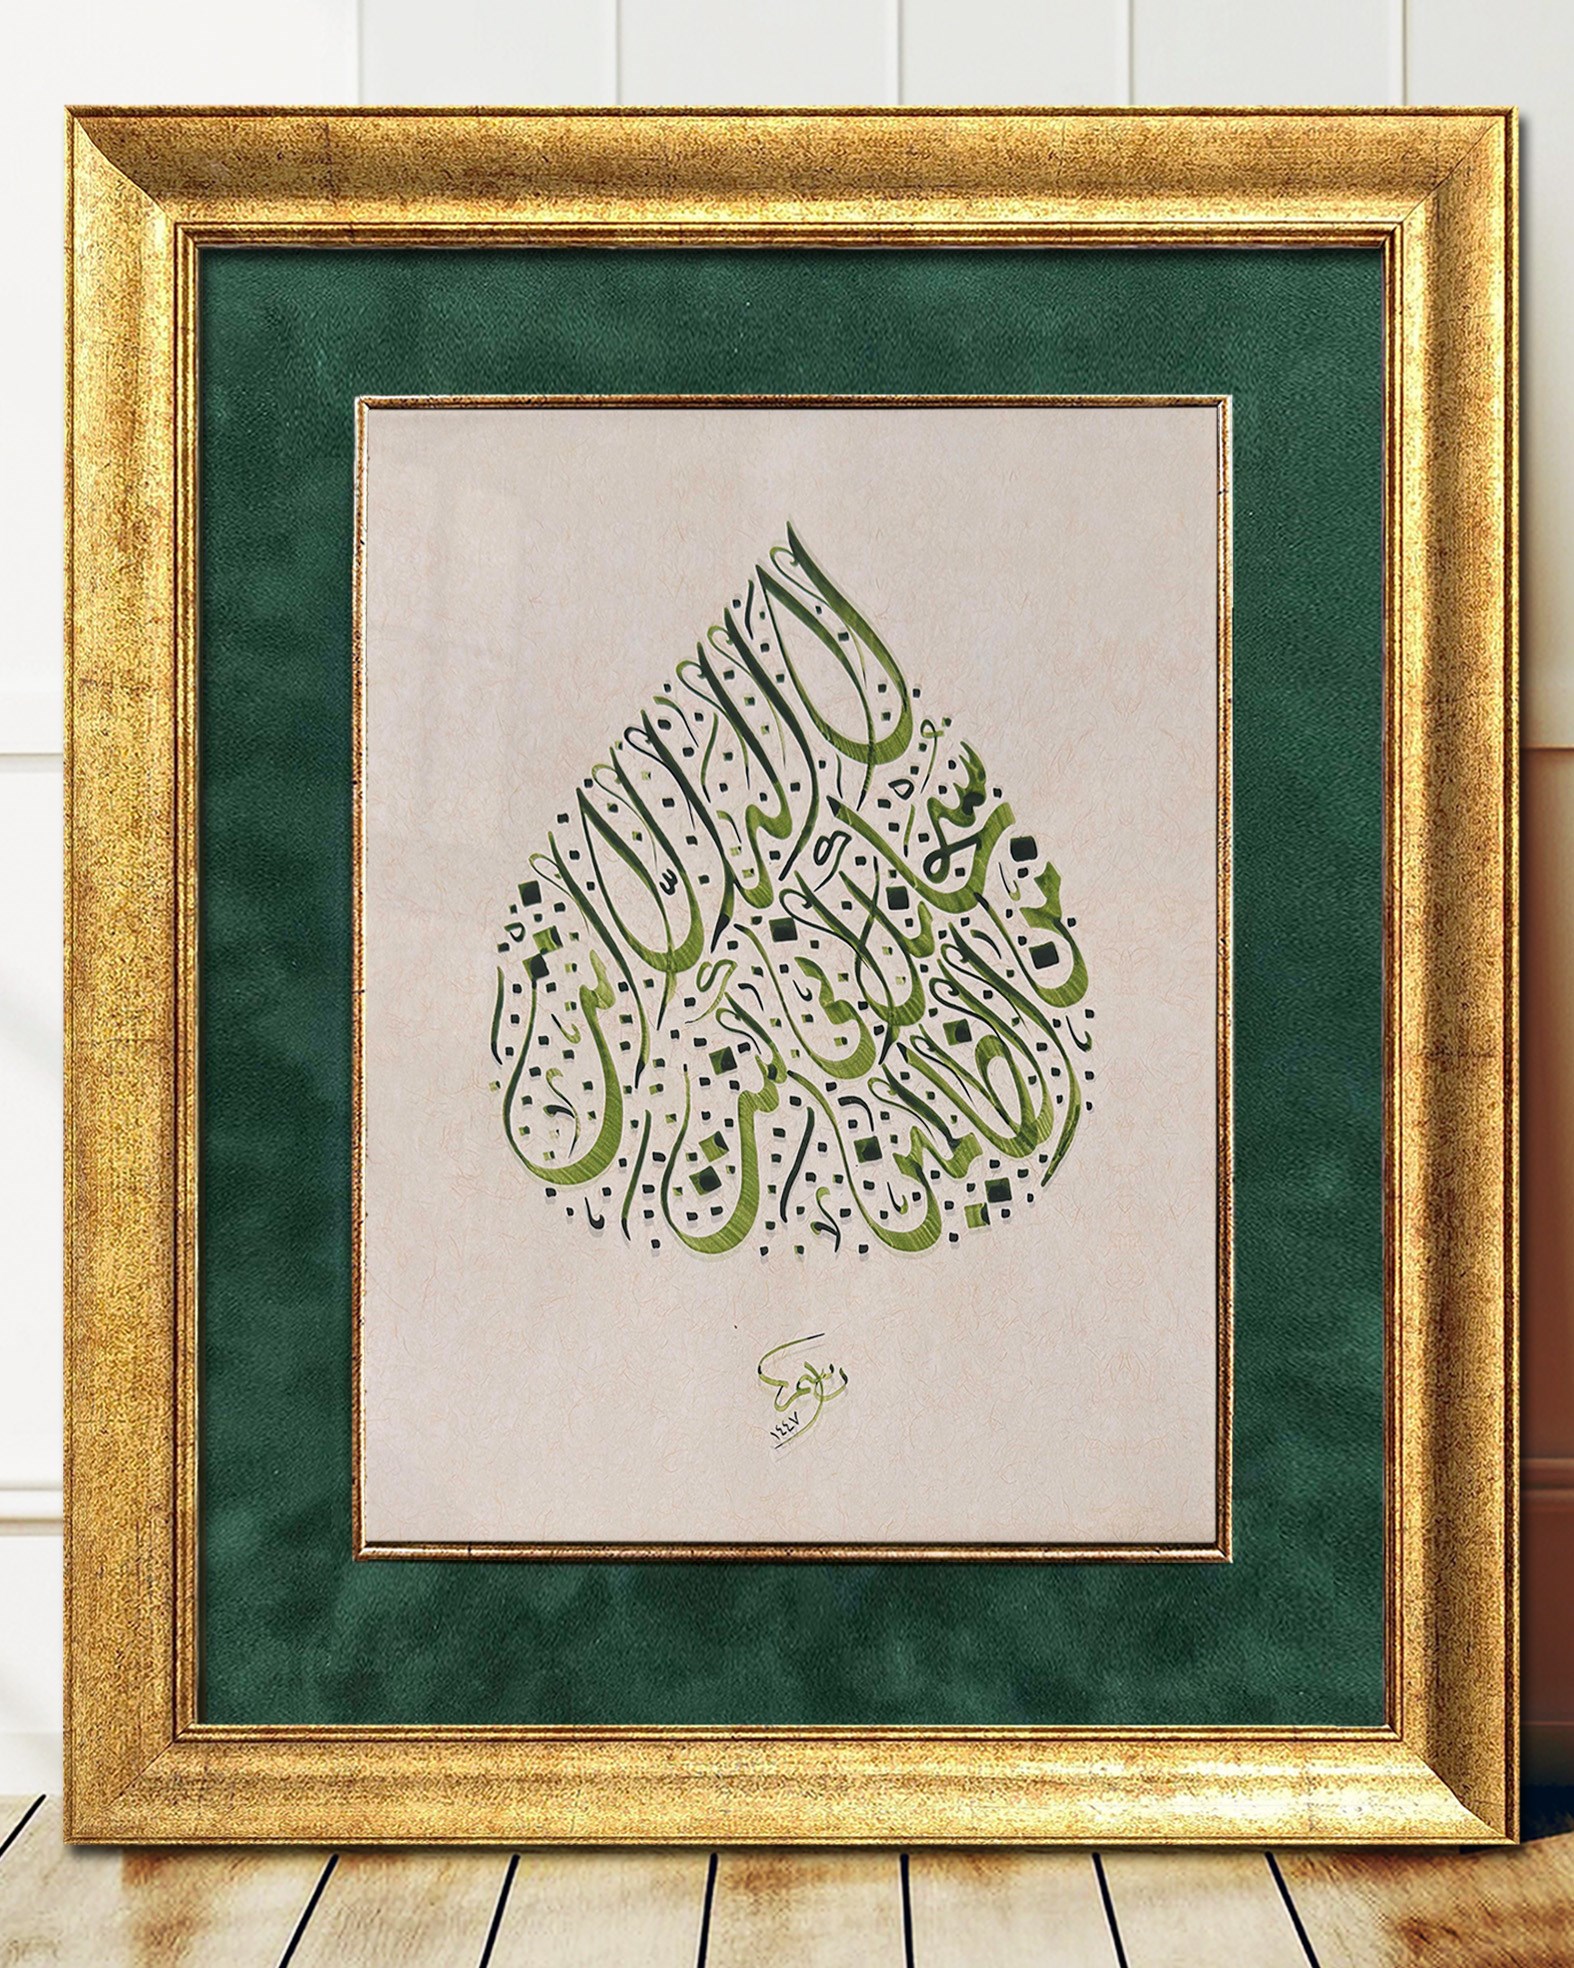 لا إله إلا أنت
سبحانك إني كنت
من الظالمين
١٤٤٧